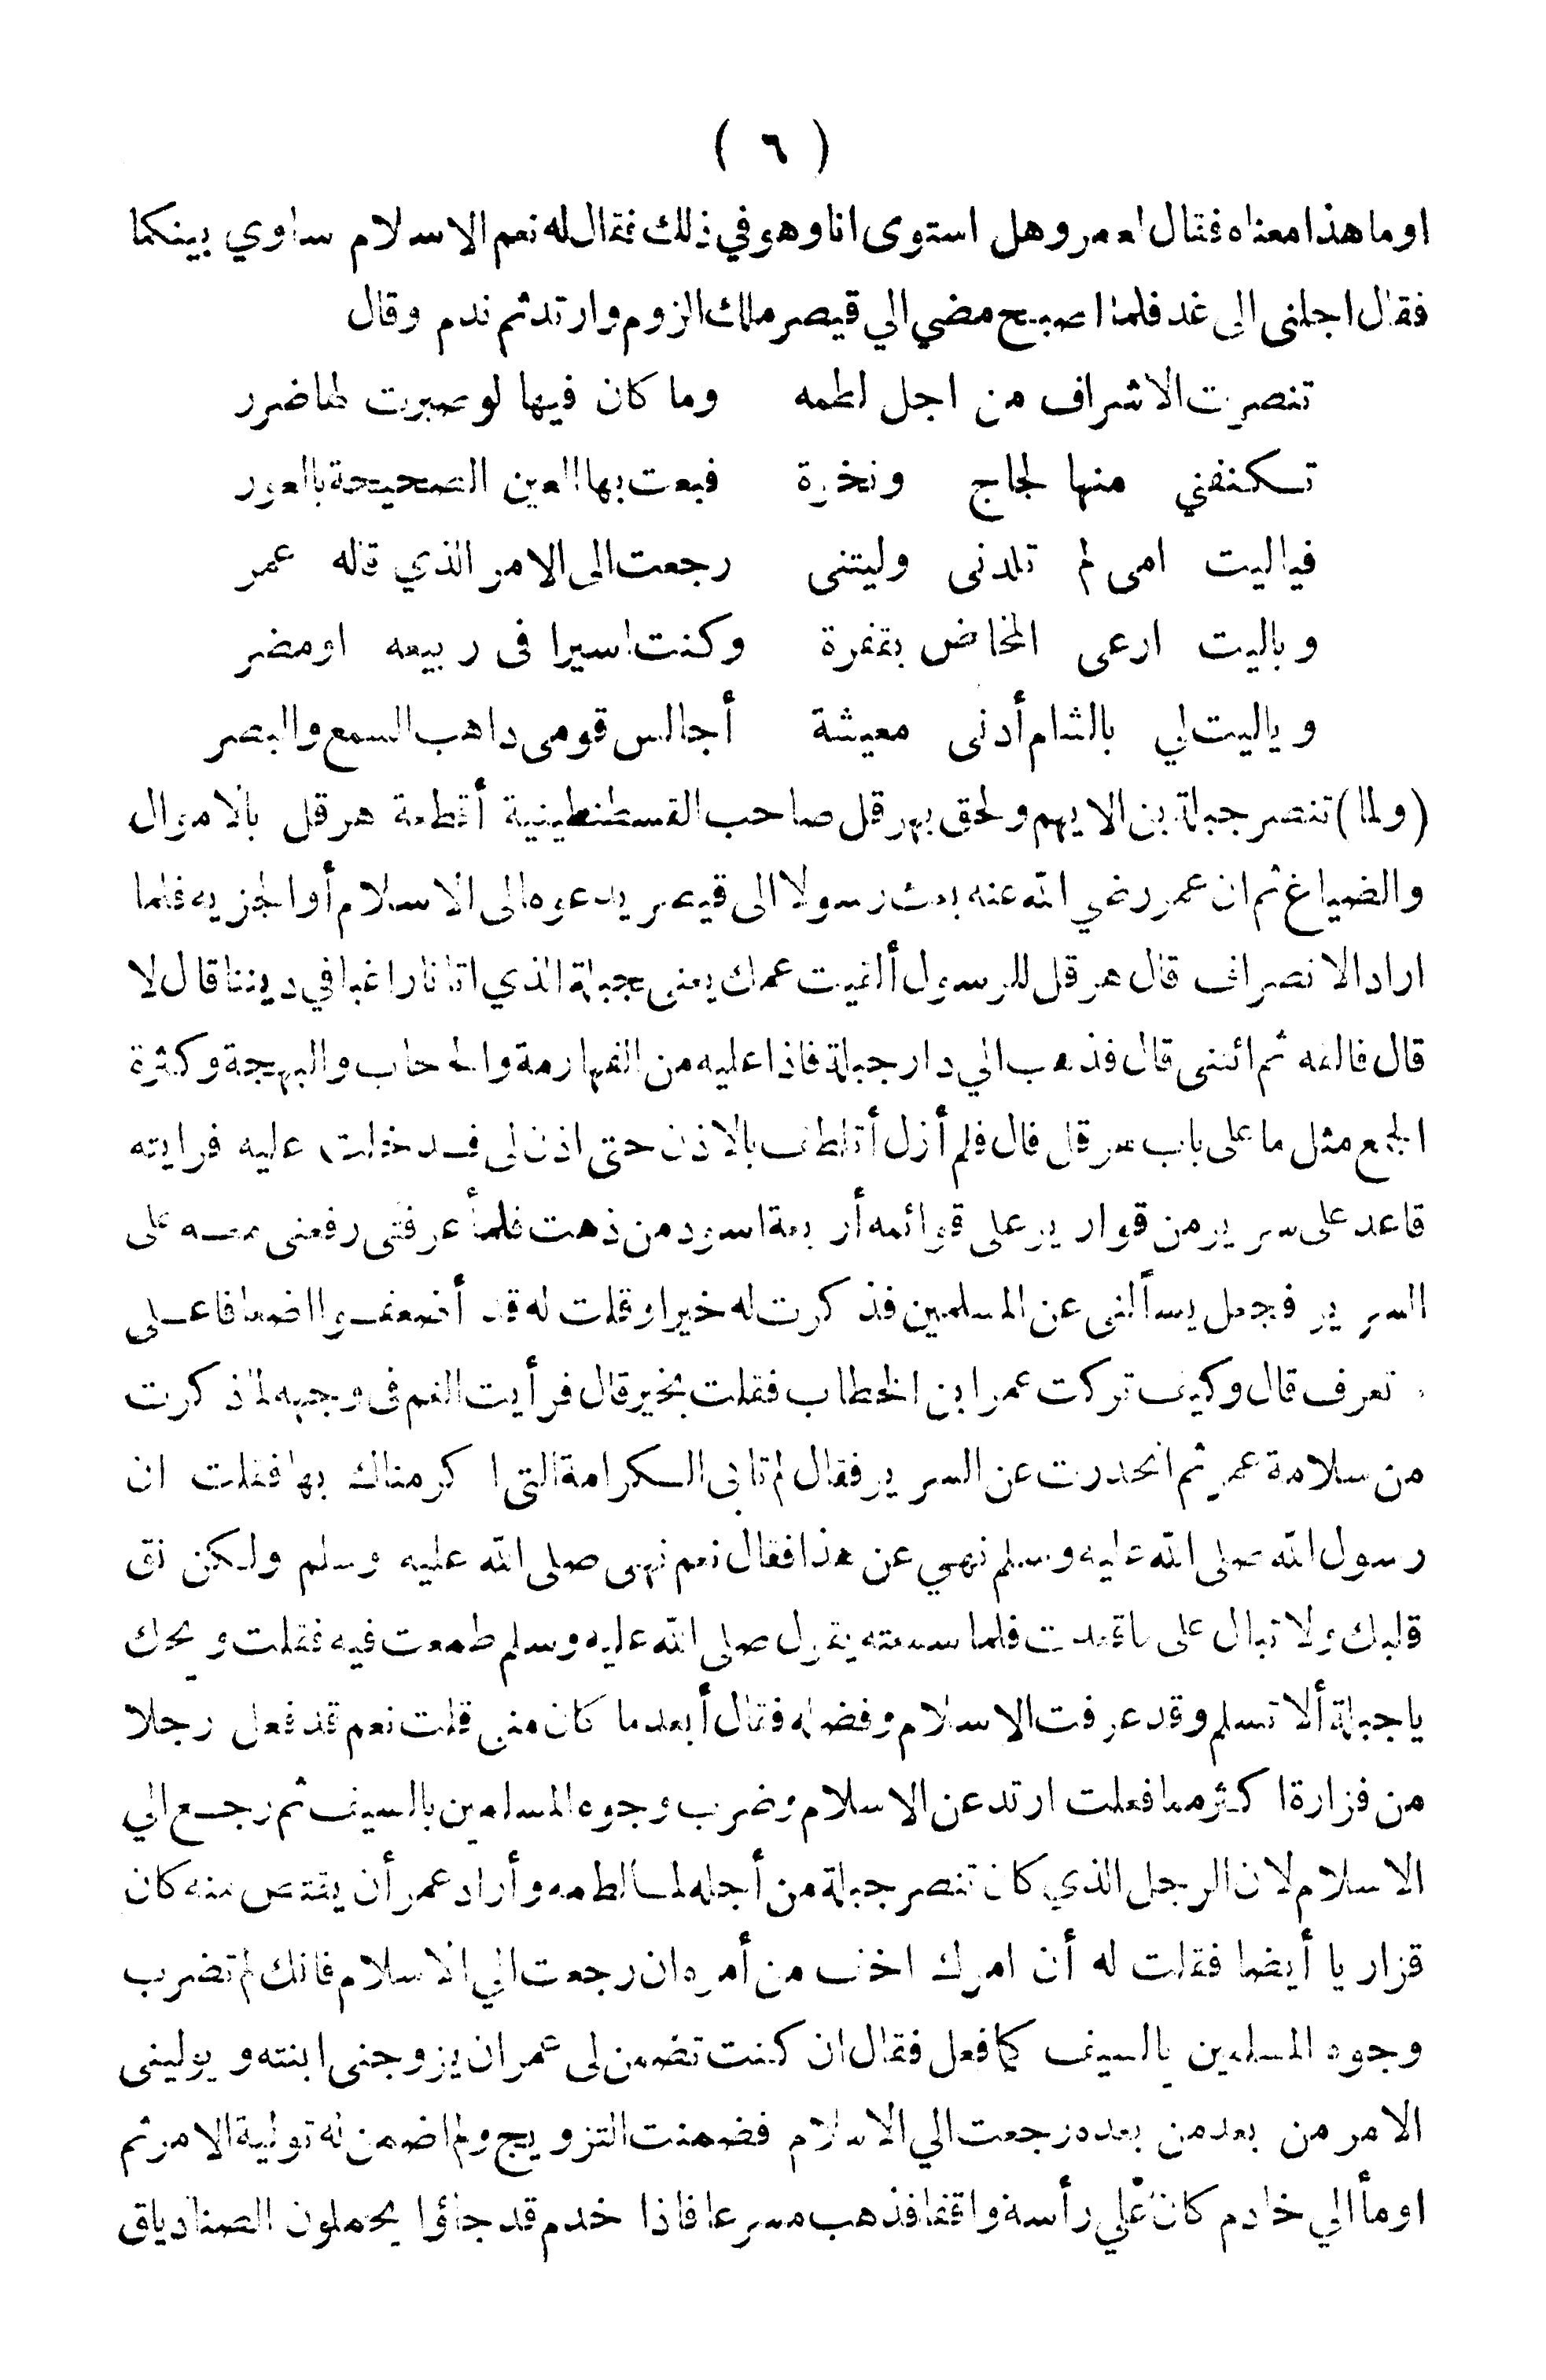 ( ٦ )
او ما هذا معناه فقال له عمر وهل استوى انا وهو في ذلك فقال له نعم الاسلام ساوي بينكما
فقال اجلنى الى غد فلما اصبح مضي الي قيصر ملك الروم وارتد ثم ندم وقال
تنصرت الاشراف من اجل لطمه وما كان فيها لو صبرت لها ضرر
تكنفني منها لجاج ونخرة فبعت بها العين الصحيحة بالعور
فياليت امى لم تلدنى وليتنى رجعت الى الامر الذي قاله عمر
وياليت ارعى المخاض بقفرة وكنت اسيرا فى ربيعه او مضر
وياليت لي بالشام أدنى معيشة أجالس قومى داهب السمع والبصر
(ولما) تنصر جبلة بن الايهم ولحق بهرقل صاحب القسطنطينية أقطعة هرقل بالاموال
والضياغ ثم ان عمر رضي الله عنه بعث رسولا الى قيصر يدعوه الى الاسلام أو الجزيه فلما
اراد الانصراف قال هرقل للرسول ألقيت عمك يعنى جبلة الذي اتانا راغبا في ديننا قال لا
قال فالقه ثم ائتنى قال فذهب الي دار جبلة فاذا عليه من القهارمة والحجاب والبهجة وكثرة
الجمع مثل ما على باب هرقل قال فلم أزل أتلطف بالاذن حتى اذن لى فدخلت عليه فرايته
قاعد على سرير من قوارير على قوائمه أربعة اسود من ذهب فلمأ عرفنى رفعنى معه على
السرير فجعل يسألنى عن المسلمين فذكرت له خيرا وقلت له قد أضعفوا اضعافا على
نعرف قال وكيف تركت عمر ابن الخطاب فقلت بخير قال فرأيت الغم فى وجهه لما ذكرت
من سلامة عمر ثم انحدرت عن السرير فقال لم تابى الكرامة التى اكرمناك بها فقلت ان
رسول الله صلى الله عليه وسلم نهي عن هذا فقال نعم نهى صلى الله عليه وسلم ولكن نق
قلبك ولا تبال على ما قعدت فلما سمعته يقول صلى الله عليه وسلم طمعت فيه فقلت ويحك
يا جبلة ألا تسلم وقد عرفت الاسلام وفضله فقال أبعد ما كان منى قلت نعم قد فعل رجلا
من فزارة اكثر مما فعلت ارتد عن الاسلام وضرب وجوه المسلمين بالسيف ثم رجع الي
الاسلام لان الرجل الذي كان تنصر جبلة من أجله لما لطمه وأراد عمر أن يقتص منه كان
قزاريا أيضا فقلت له أن امرك اخف من أمره ان رجعت الي الاسلام فانك لم تضرب
وجوه المسلمين بالسيف كما فعل فقال ان كنت تضمن لى عمر ان يزوجنى ابنته ويولينى
الامر من بعد من بعده رجعت الي الاسلام فضمنت التزويج ولم اضمن له تولية الامر ثم
اومأ الي خادم كان علي رأسة واقفا فذهب مسرعا فاذا خدم قد جاؤا يحملون الصناديق